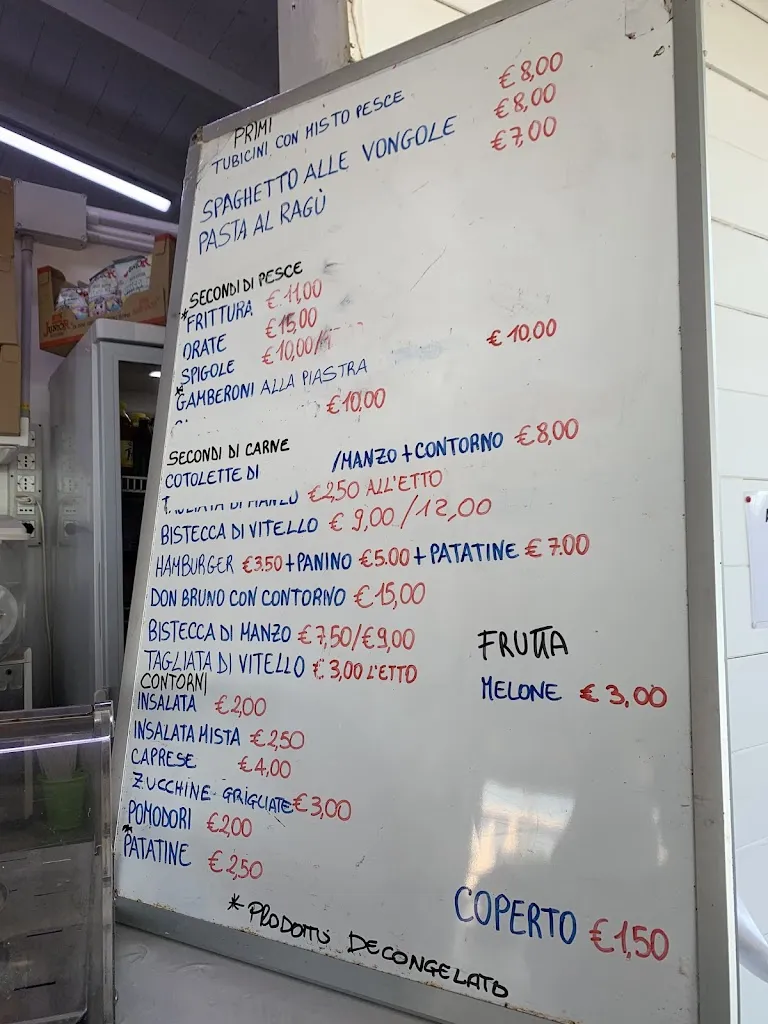 PRIMI
TUBICINI CON MISTO PESCE €8,00
SPAGHETTO ALLE VONGOLE €8,00
PASTA AL RAGÙ €7,00
*SECONDI DI PESCE
FRITTURA €11,00
ORATE €15,00
SPIGOLE €10,00/
GAMBERONI ALLA PIASTRA €10,00
€10,00
SECONDI DI CARNE
COTOLETTE DI /MANZO + CONTORNO €8,00
TAGLIATA DI MANZO €2,50 ALL'ETTO
BISTECCA DI VITELLO € 9,00/12,00
HAMBURGER €3.50 + PANINO €5.00 + PATATINE € 7.00
DON BRUNO CON CONTORNO €15,00
BISTECCA DI MANZO €7,50/€9,00
TAGLIATA DI VITELLO € 3,00 L'ETTO
CONTORNI
INSALATA €2,00
INSALATA MISTA €2,50
CAPRESE €4,00
ZUCCHINE GRIGLIATE €3,00
POMODORI €2,00
*PATATINE €2,50
FRUTTA
MELONE €3,00
COPERTO €1,50
* PRODOTTI DECONGELATO